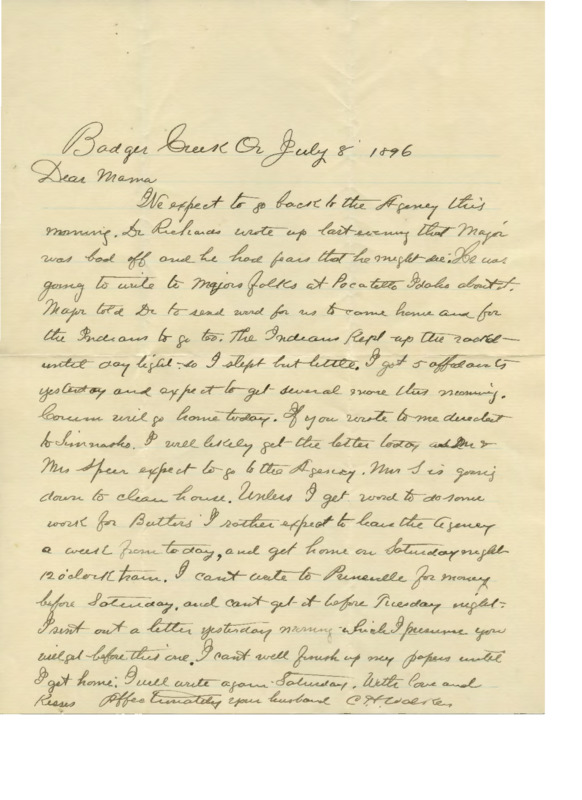 Badger Creek Or July 8 1896
Dear Mama
We expect to go back to the Agency this
morning. Dr Richards wrote up last evening that Major
was bad off and he had fears that he might die. He was
going to write to Majors folks at Pocatello Idaho about it.
Major told Dr to send word for us to come home and for
the Indians to go too. The Indians kept up the racket
until day light - so I slept but little. I got 5 affidavits
yesterday and expect to get several more this morning.
will go home today. If you wrote to me direct
to Simnasho. I will likely get the letter today &
Mrs Speer expect to go to the Agency. Mrs S is going
down to clean house. Unless I get word to do some
work for Butler I rather expect to leave the Agency
a week from today, and get home on Saturday night
12 oclock train. I cant write to Prineville for money
before Saturday, and cant get it before Tuesday night -
I sent out a letter yesterday morning which I presume you
will get before this one. I cant well finish up my papers until
I get home. I will write again Saturday. With love and
Kisses Affectionately your husband C.H. Walker